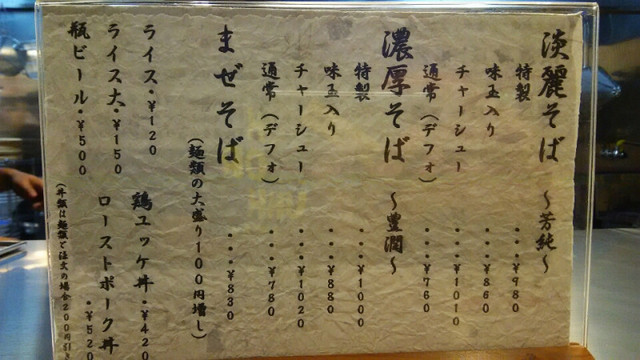 淡麗そば ～芳純～
特製・・・¥980
味玉入り・・・¥860
チャーシュー・・・¥1010
通常(デフォ)・・・¥760
濃厚そば ～豊潤～
特製・・・¥1000
味玉入り・・・¥880
チャーシュー・・・¥1020
通常(デフォ)・・・¥780
まぜそば・・・¥830
(麺類の大盛り100円増し)
ライス・¥120
ライス大・¥150
瓶ビール・¥500
鶏ユッケ丼・¥420
ローストポーク丼・¥520
(丼類は麺類と注文の場合200円引き